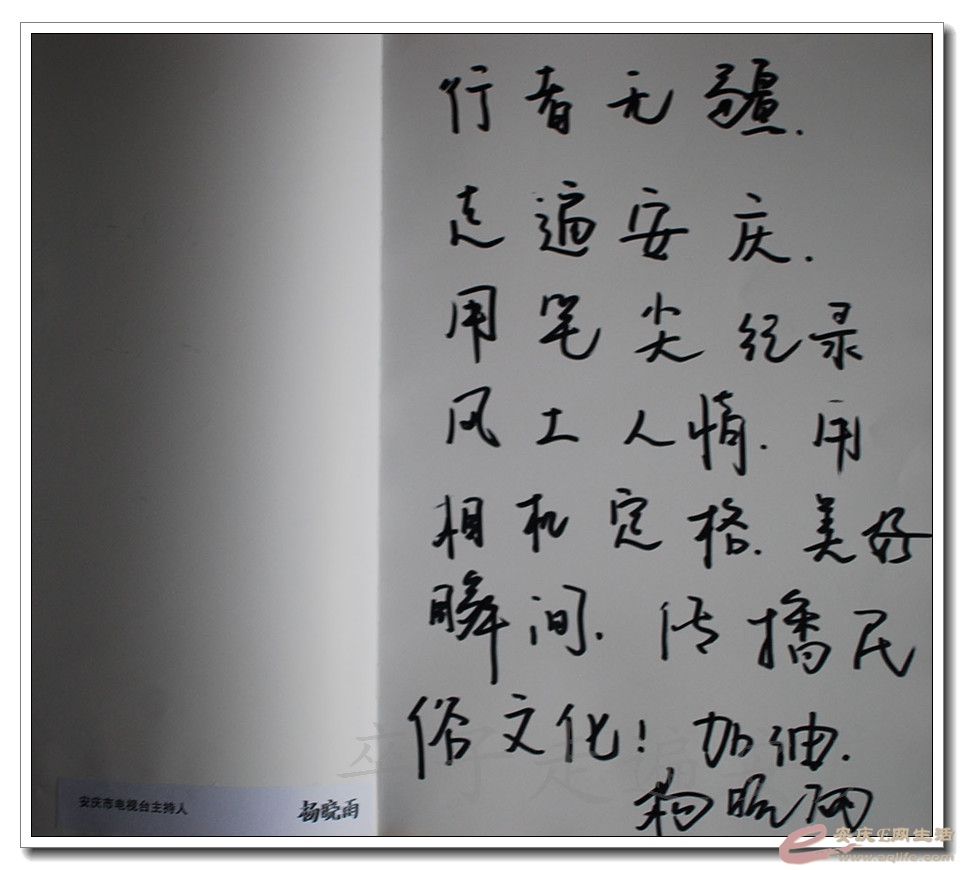 行者无疆.
走遍安庆.
用笔尖纪录
风土人情.用
相机定格.美好
瞬间.传播民
俗文化!加油.
杨晓雨
安庆市电视台主持人 杨晓雨
卒子走遍安
安庆E网生活
www.aqlife.com